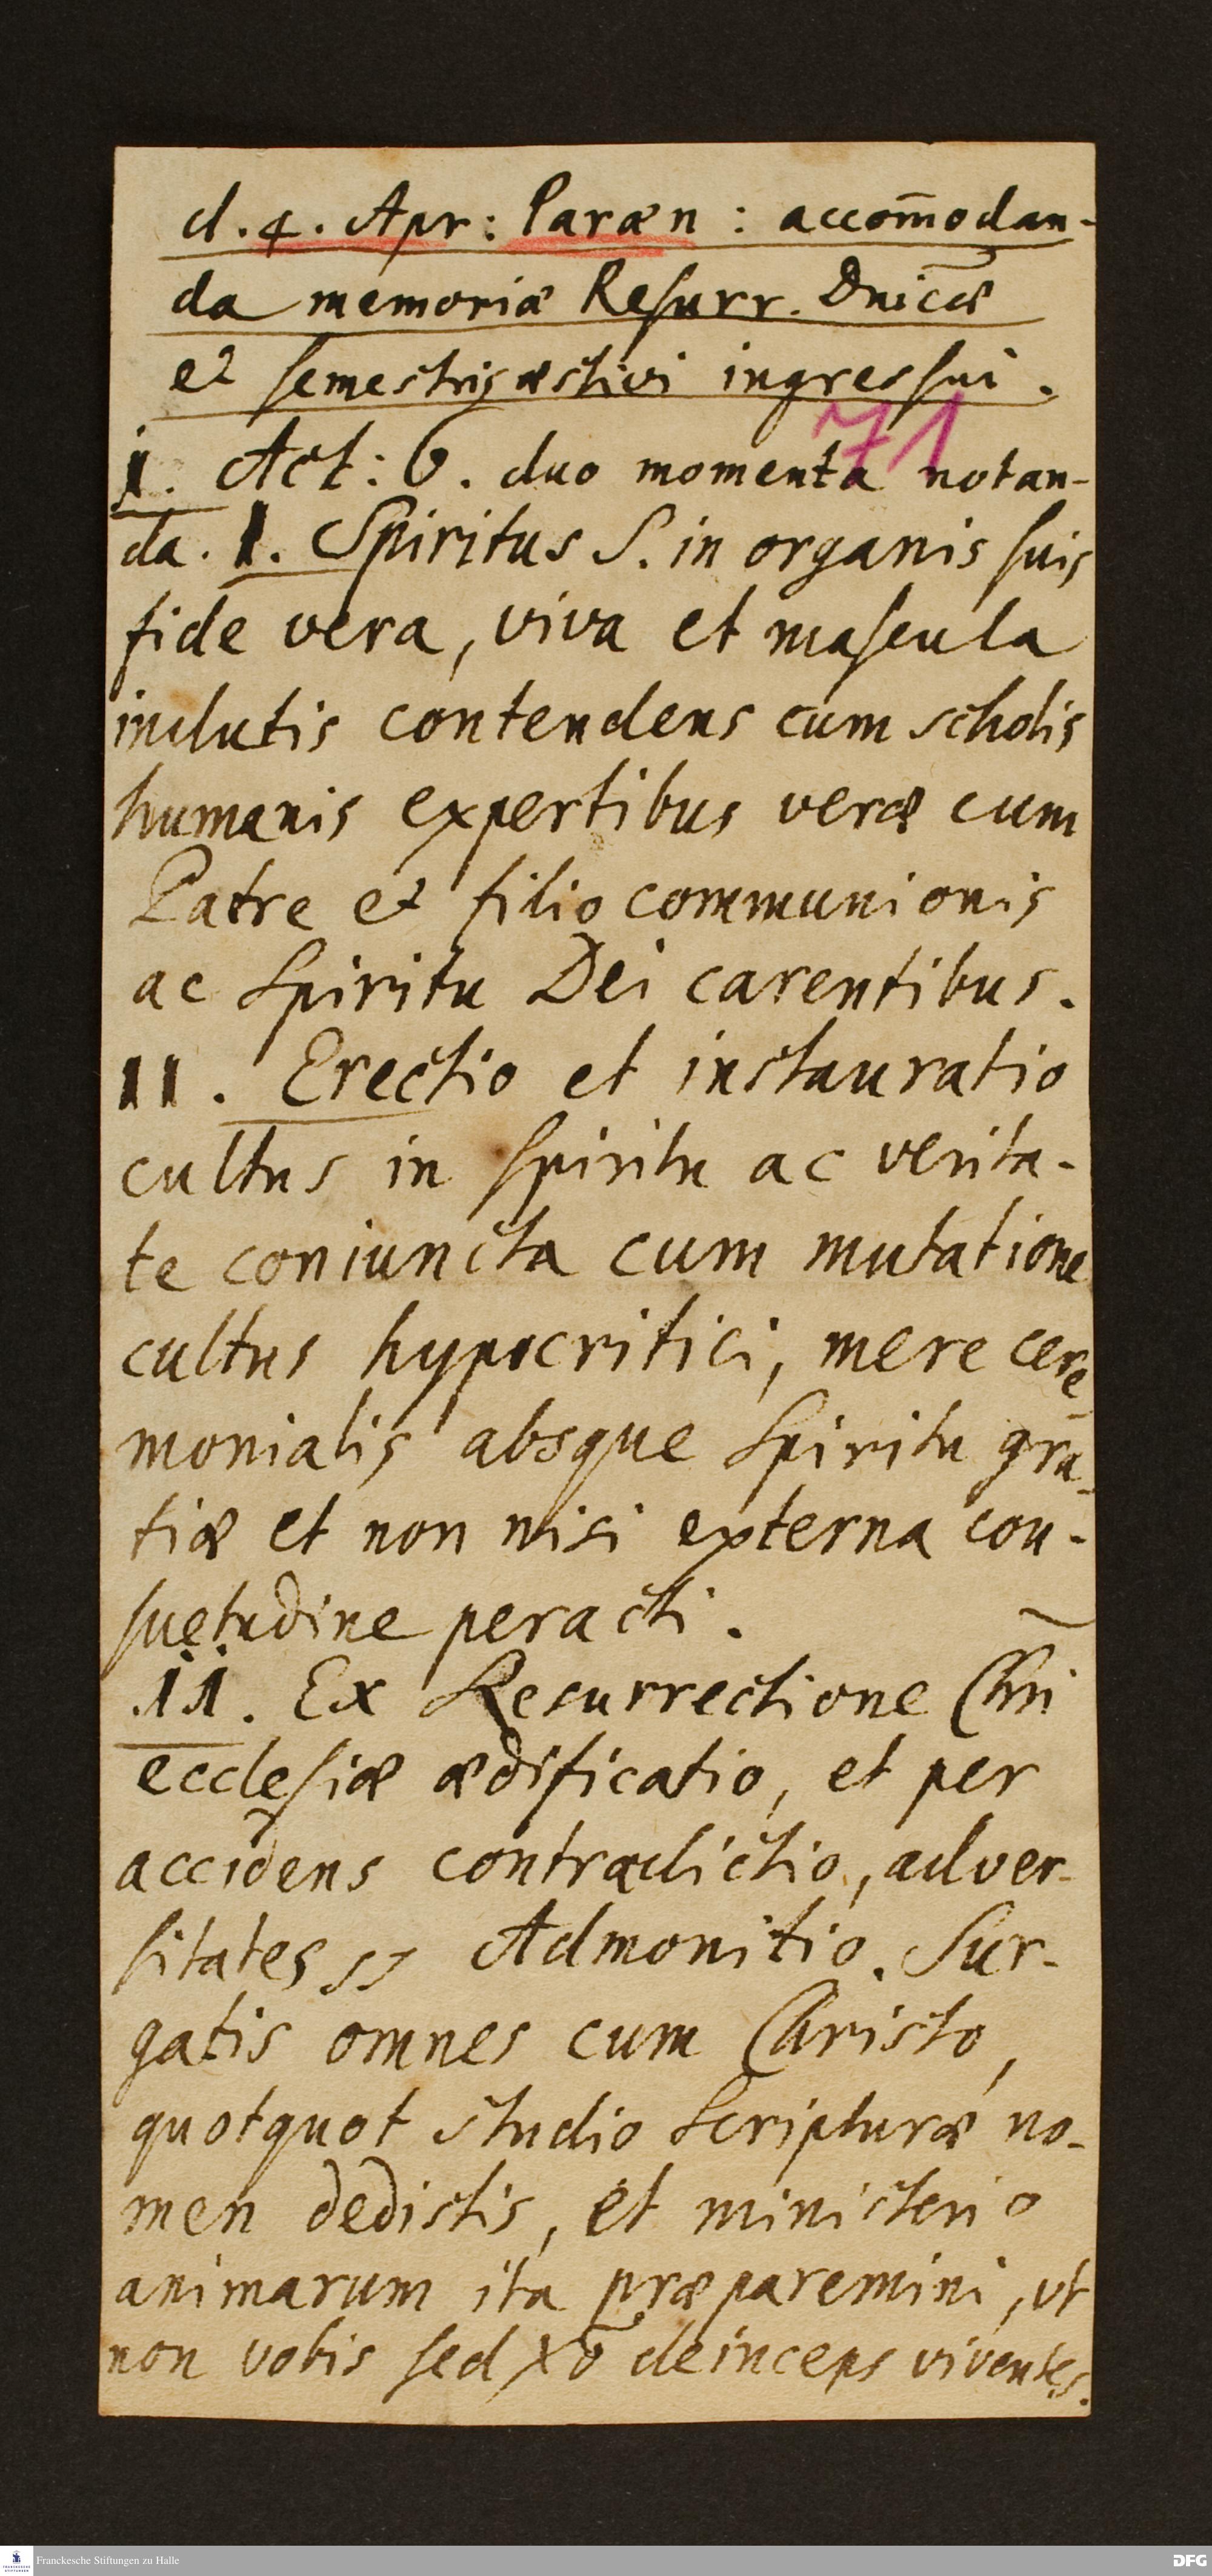 d. 4. Apr: Paræn: accom̄odan-
da memoriæ Resurr. Dnicæ
et semestris æstivi ingressui.
71
I. Act: 6. duo momenta notan-
da. I. Spiritus S. in organis suis
fide vera, viva et mascula
inclutis contendens cum scholis
humanis expertibus veræ cum
Patre et filio communionis
ac Spiritu Dei carentibus.
II. Erectio et instauratio
cultus in spiritu ac verita-
te coniuncta cum mutatione
cultus hypocritici, mere cere-
monialis absque Spiritu gra-
tiæ et non nisi externa con-
suetudine peracti.
II. Ex Resurrectione Chri
ecclesiæ ædificatio, et per
accidens contradictio, adver-
sitates Admonitio. Sur-
gatis omnes cum Christo,
quotquot studio Scripturæ no-
men dedistis, et ministerio
animarum ita præparemini, ut
non vobis sed Xō deinceps viventes.
Franckesche Stiftungen zu Halle
DFG